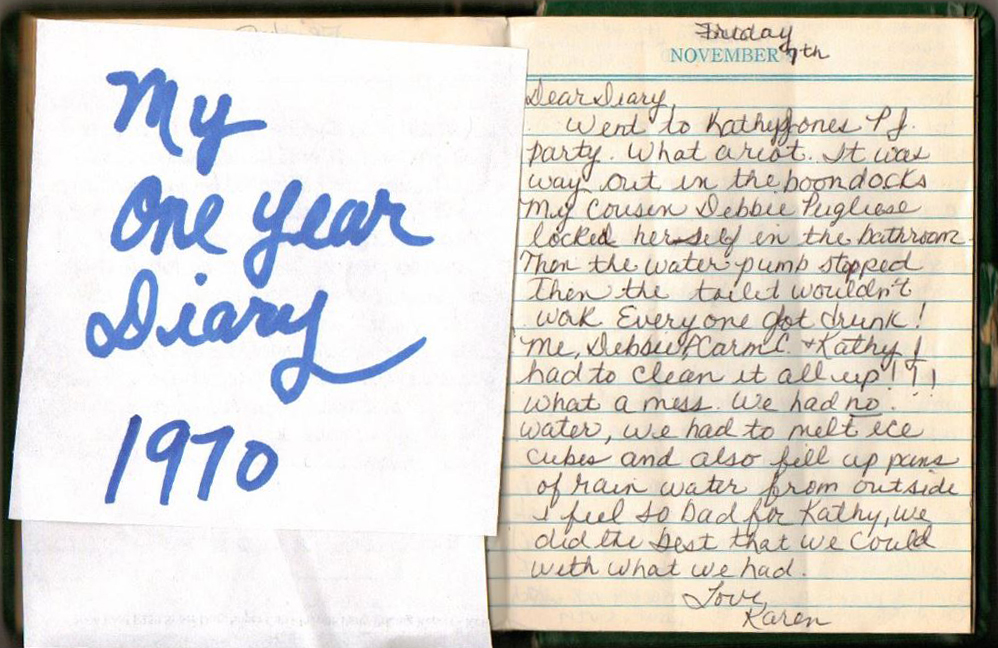 My
One Year
Diary
1970
Friday
NOVEMBER 7th
Dear Diary,
Went to Kathy Jones PJ.
party. What a riot. It was
way out in the boondocks
My Cousin Debbie Pugliese
locked herself in the bathroom
Then the water pump stopped
Then the toilet wouldn't
work. Everyone got drunk!
Me, Debbie P, Carm C. + Kathy J
had to clean it all up!!!
What a mess. We had no
water, we had to melt ice
cubes and also fill up pans
of rain water from outside
i feel so bad for Kathy, we
did the best that we could
with what we had.
Love,
Karen